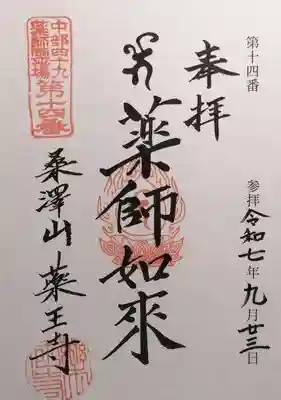 第十四番
参拝 令和七年九月廿三日
奉拝
薬師如来
中部四十九
薬師霊場第十四番
桑澤山 薬王寺